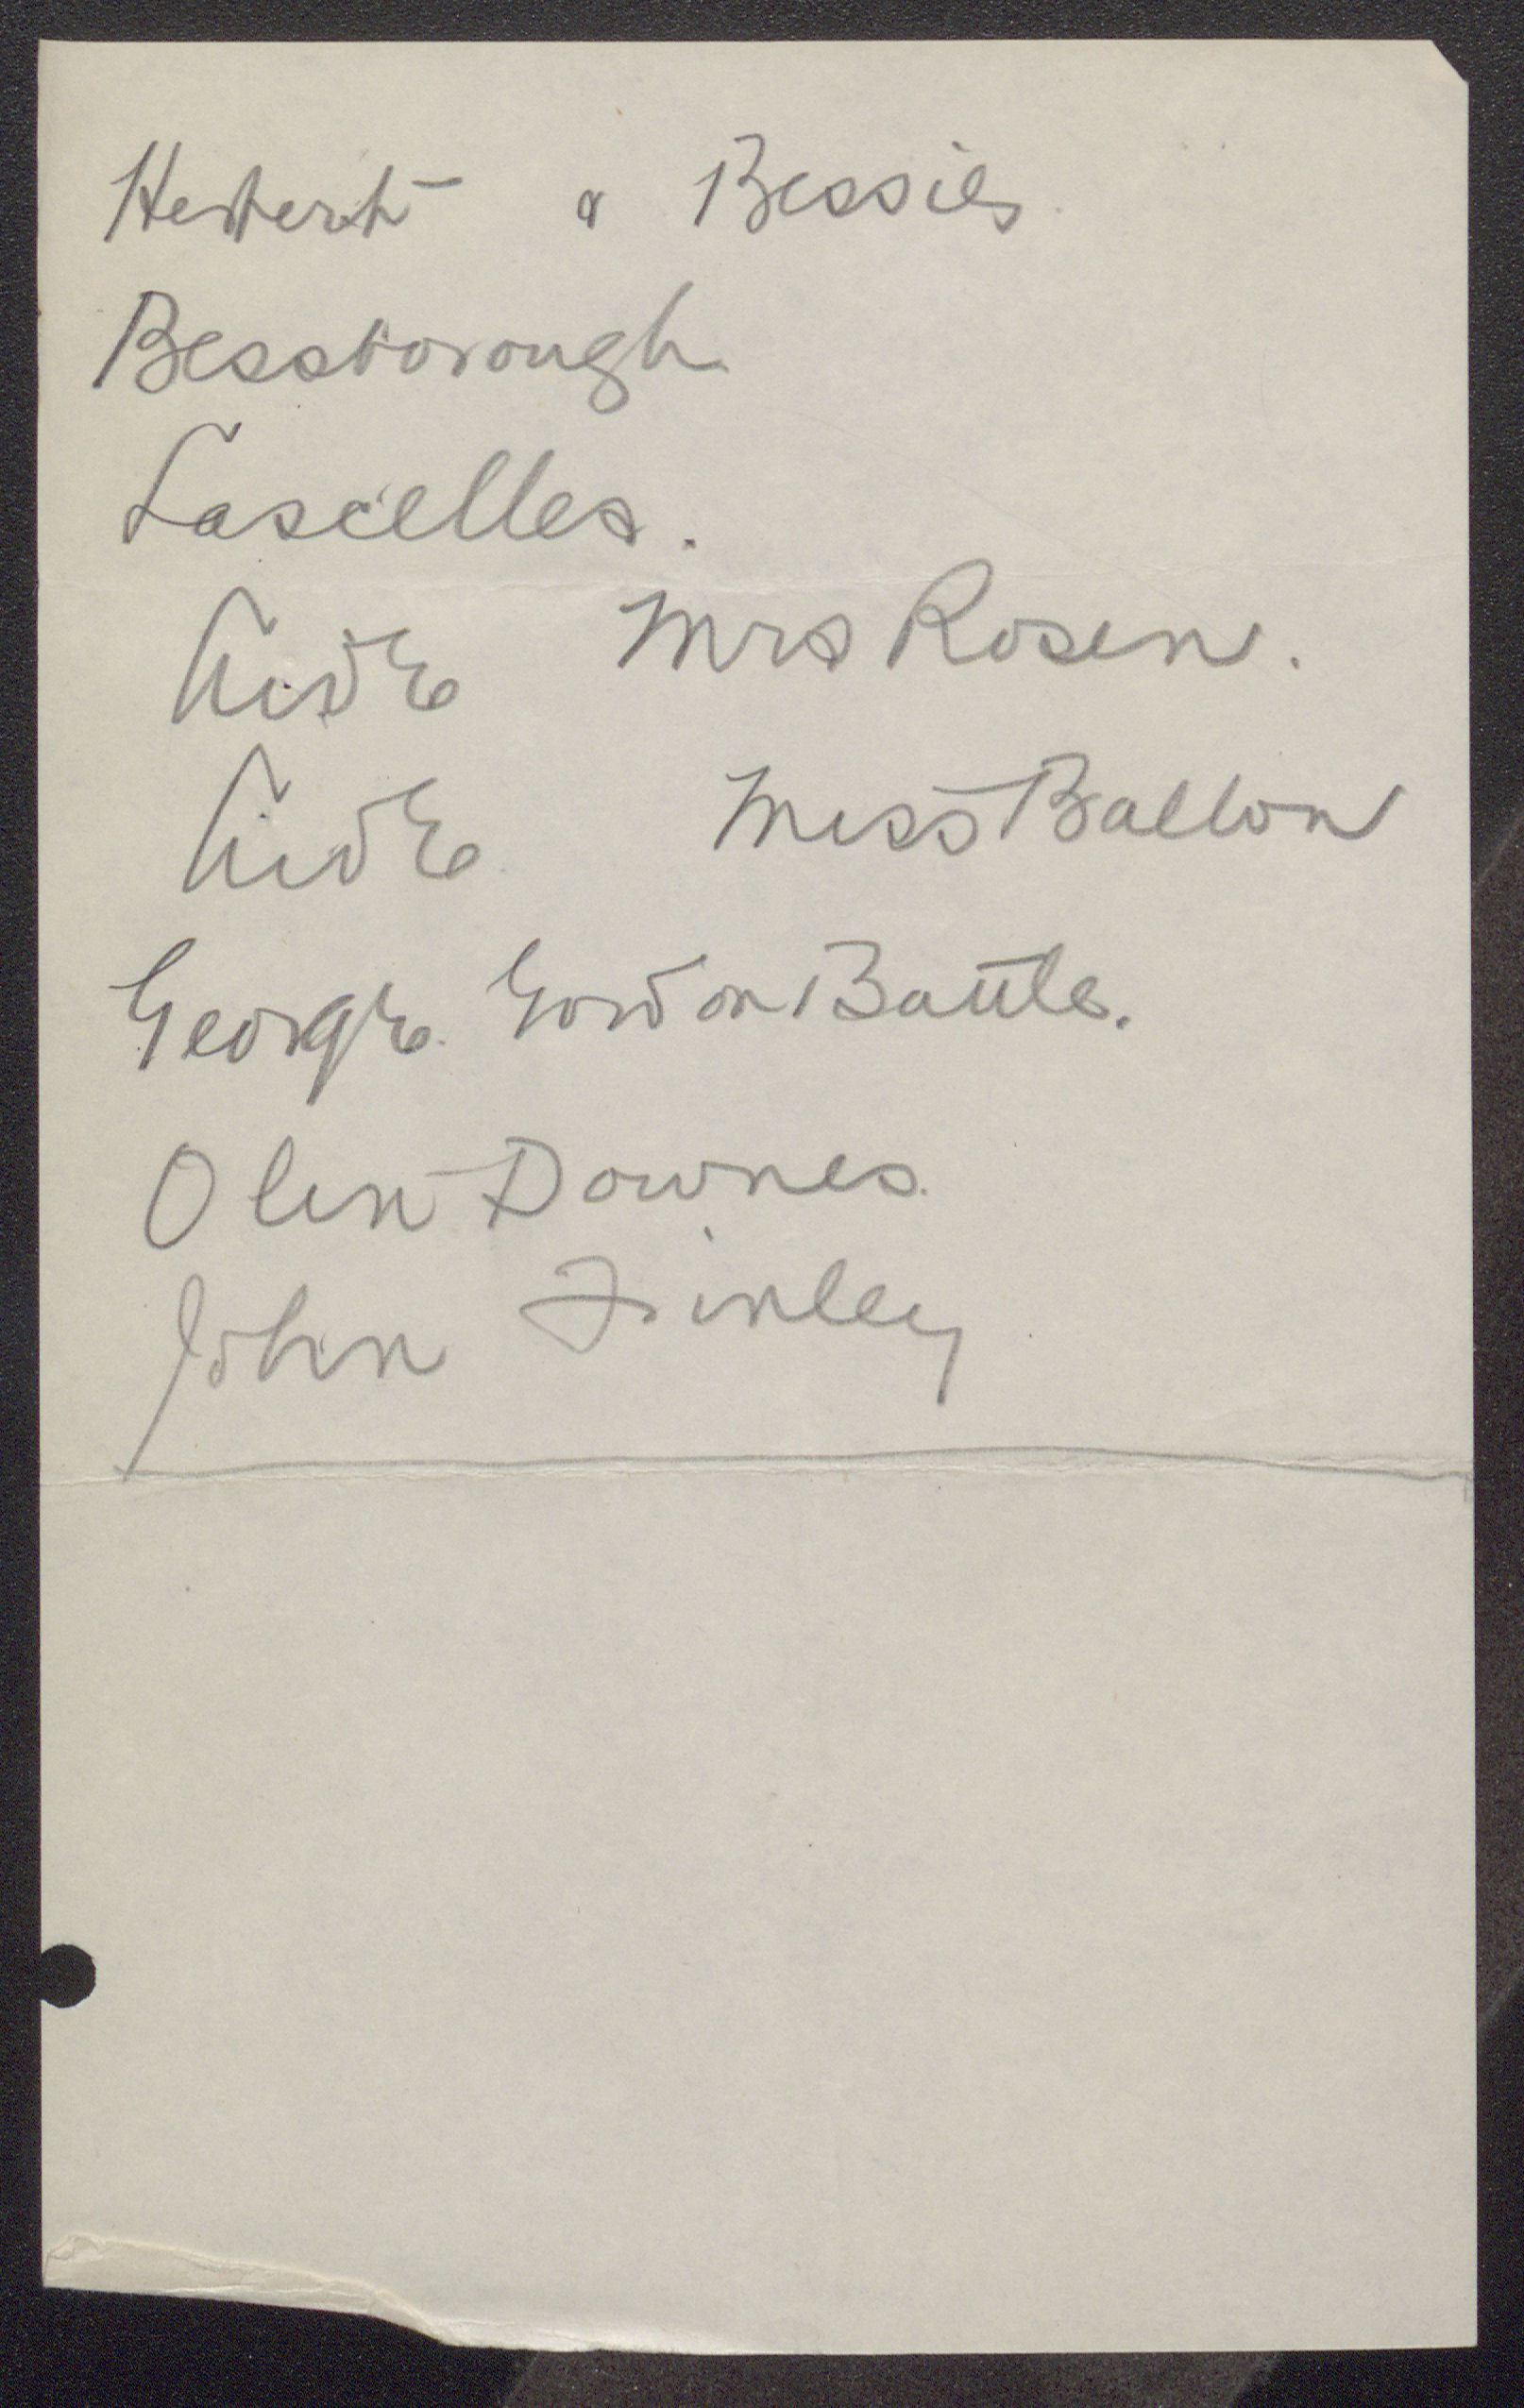 Herbert & Bessie
Bessborough
Lascelles.
Aide Mrs Rosen.
Aide Miss Ballon
George Gordon Battle.
Olin Downes.
John Finley